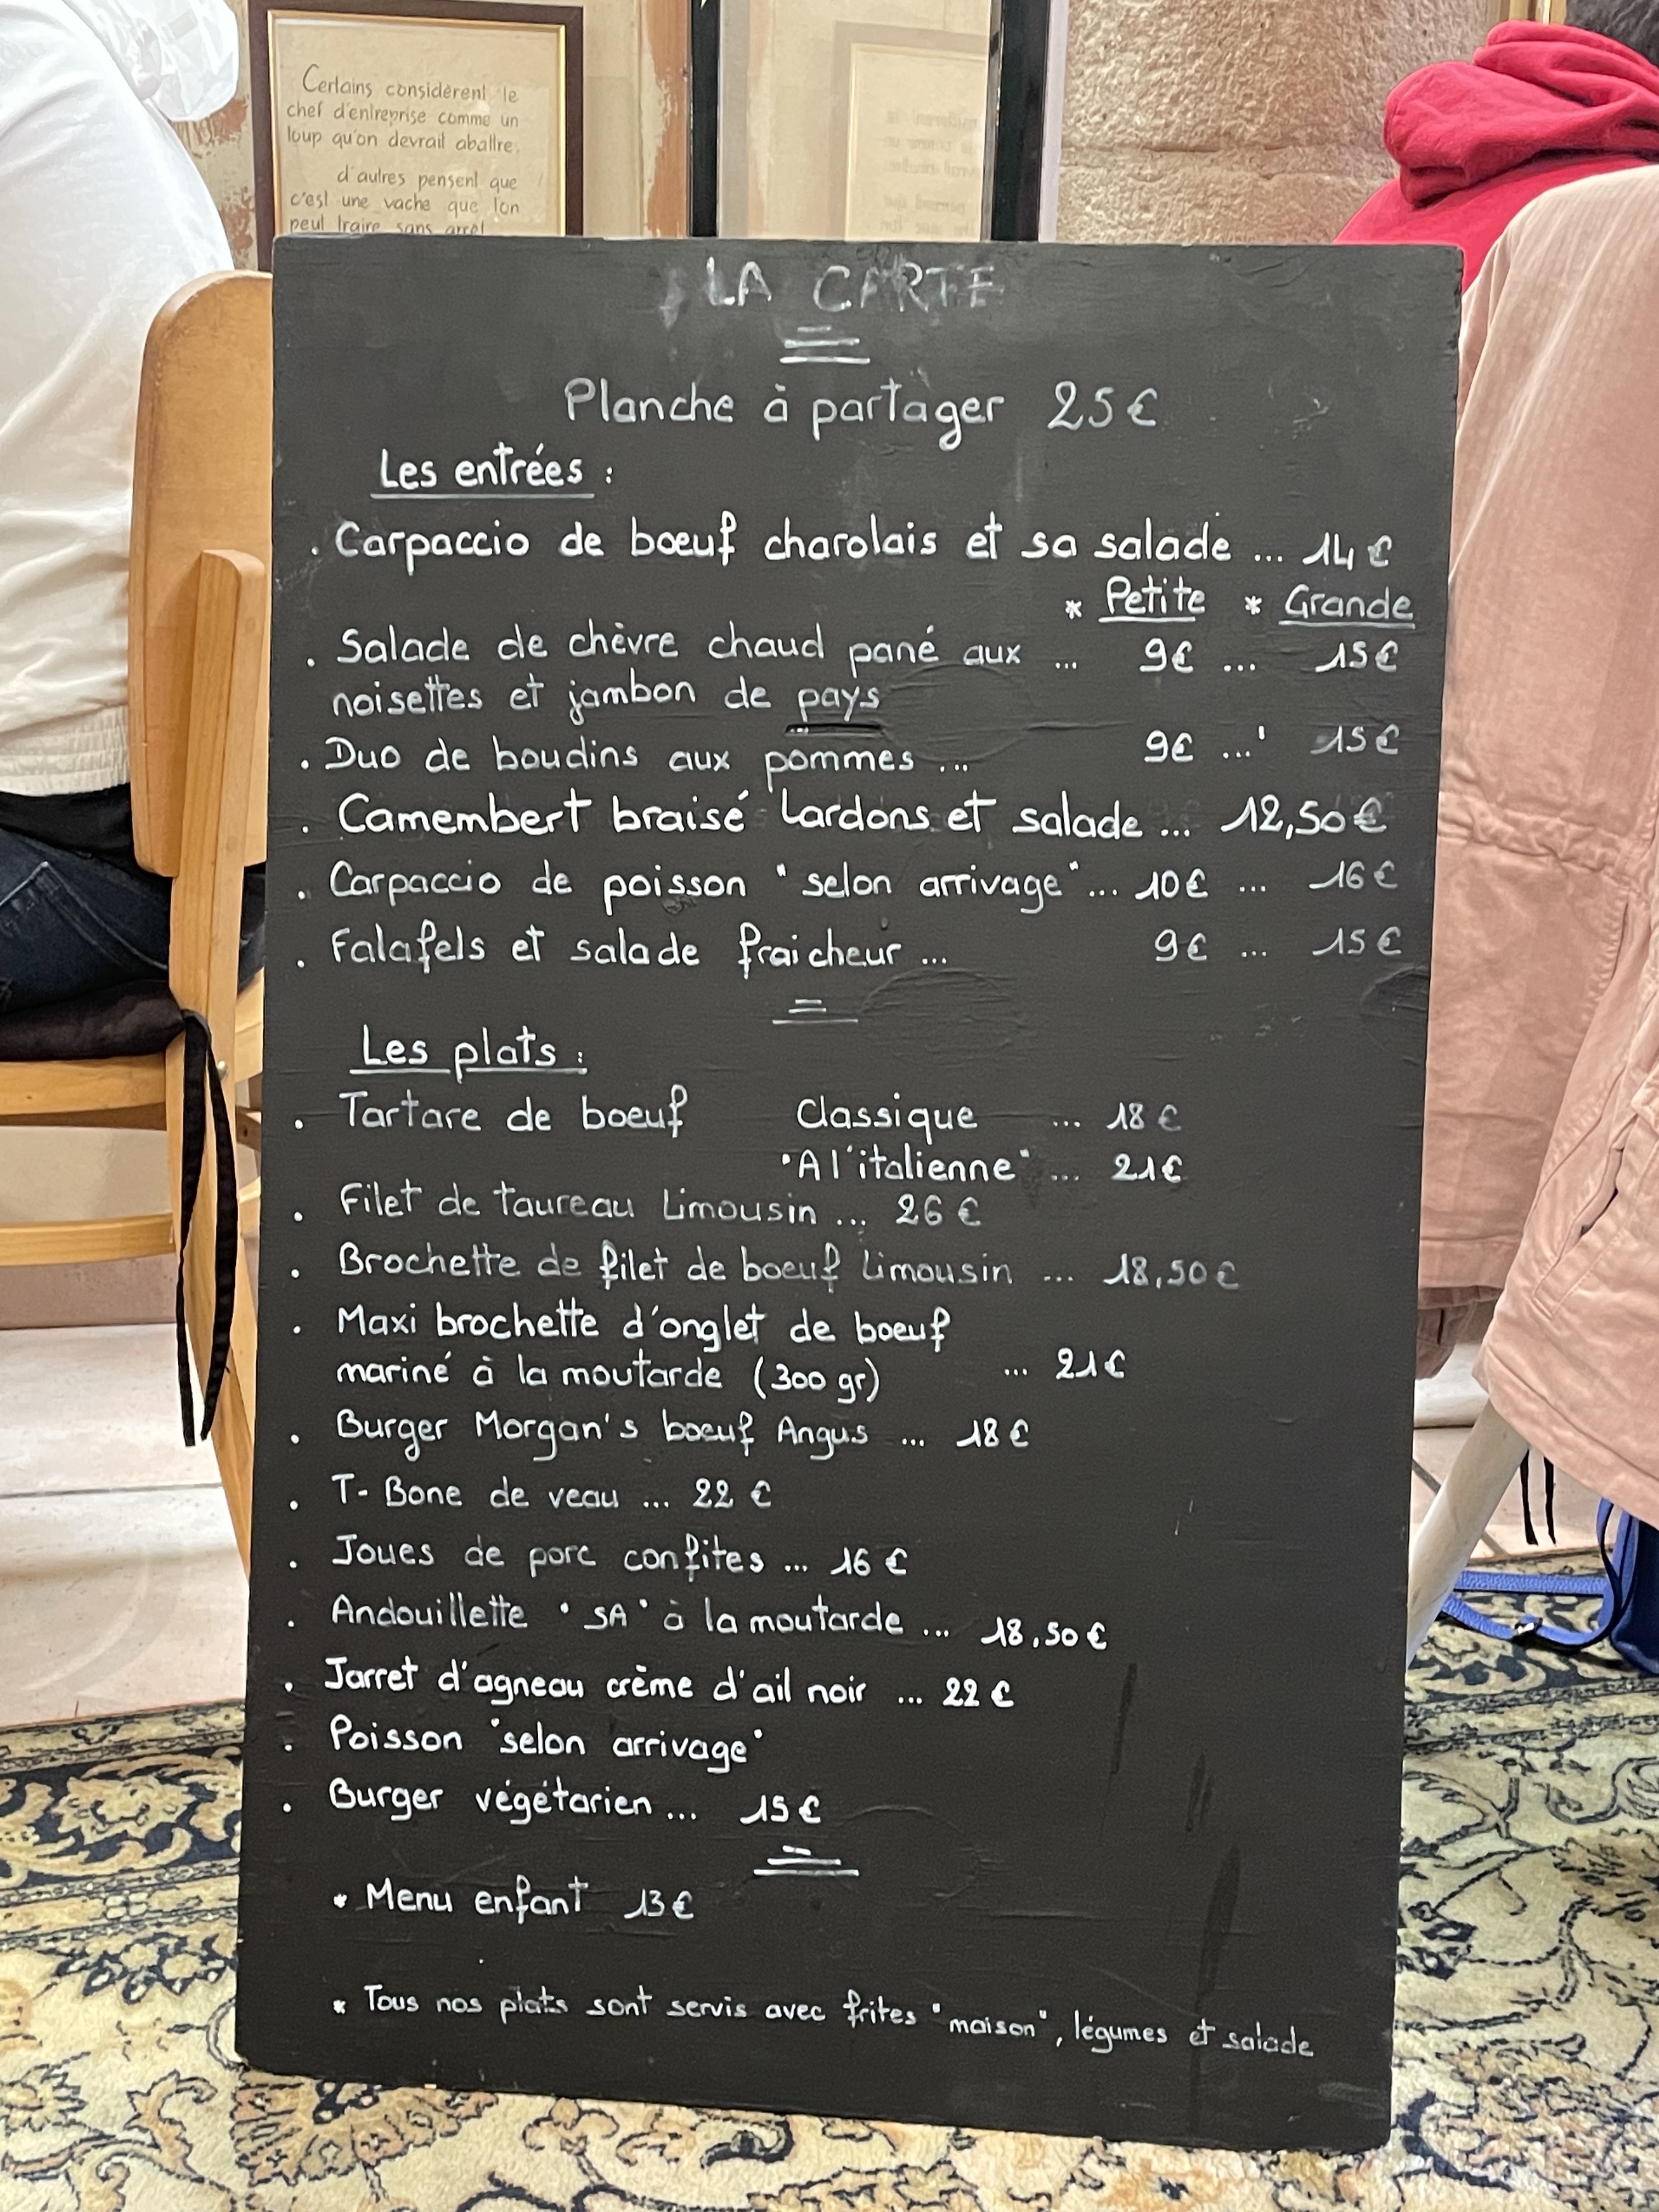 Certains considèrent le
chef d'entreprise comme un
loup qu'on devrait abattre.
d'autres pensent que
c'est une vache que l'on
peut traire sans arrêt
LA CARTE
Planche à partager 25€
Les entrées :
. Carpaccio de boeuf charolais et sa salade ... 14€
* Petite * Grande
. Salade de chèvre chaud pané aux ... 9€ ... 15€
noisettes et jambon de pays
. Duo de boudins aux pommes ... 9€ ... 15€
. Camembert braisé lardons et salade ... 12,50€
. Carpaccio de poisson "selon arrivage" ... 10€ ... 16€
. Falafels et salade fraicheur ... 9€ ... 15€
Les plats :
. Tartare de boeuf Classique ... 18€
"A l'italienne" ... 21€
. Filet de taureau Limousin ... 26€
. Brochette de filet de boeuf Limousin ... 18,50€
. Maxi brochette d'onglet de boeuf
mariné à la moutarde (300 gr) ... 21€
. Burger Morgan's boeuf Angus ... 18€
. T-Bone de veau ... 22€
. Joues de porc confites ... 16€
. Andouillette "5A" à la moutarde ... 18,50€
. Jarret d'agneau crème d'ail noir ... 22€
. Poisson "selon arrivage"
. Burger végétarien ... 15€
* Menu enfant 13€
* Tous nos plats sont servis avec frites "maison", légumes et salade